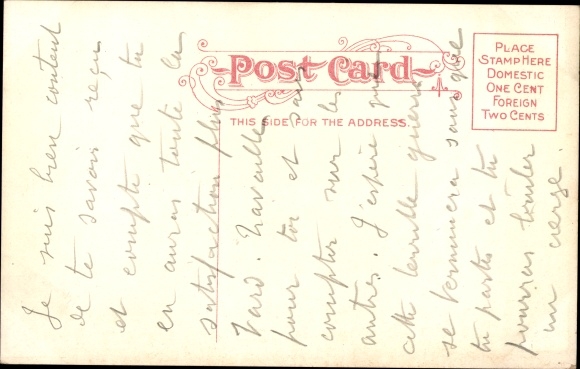 Post Card
THIS SIDE FOR THE ADDRESS.
PLACE
STAMP HERE
DOMESTIC
ONE CENT
FOREIGN
TWO CENTS
Je suis bien content
de te savoir reçu
et compte que tu
en auras toute la
satisfaction plus
tard. Travaille
pour toi et sans
compter sur les
autres. J'espère que
cette terrible guerre
se terminera sans que
tu partes et tu
pourras brûler
un cierge.